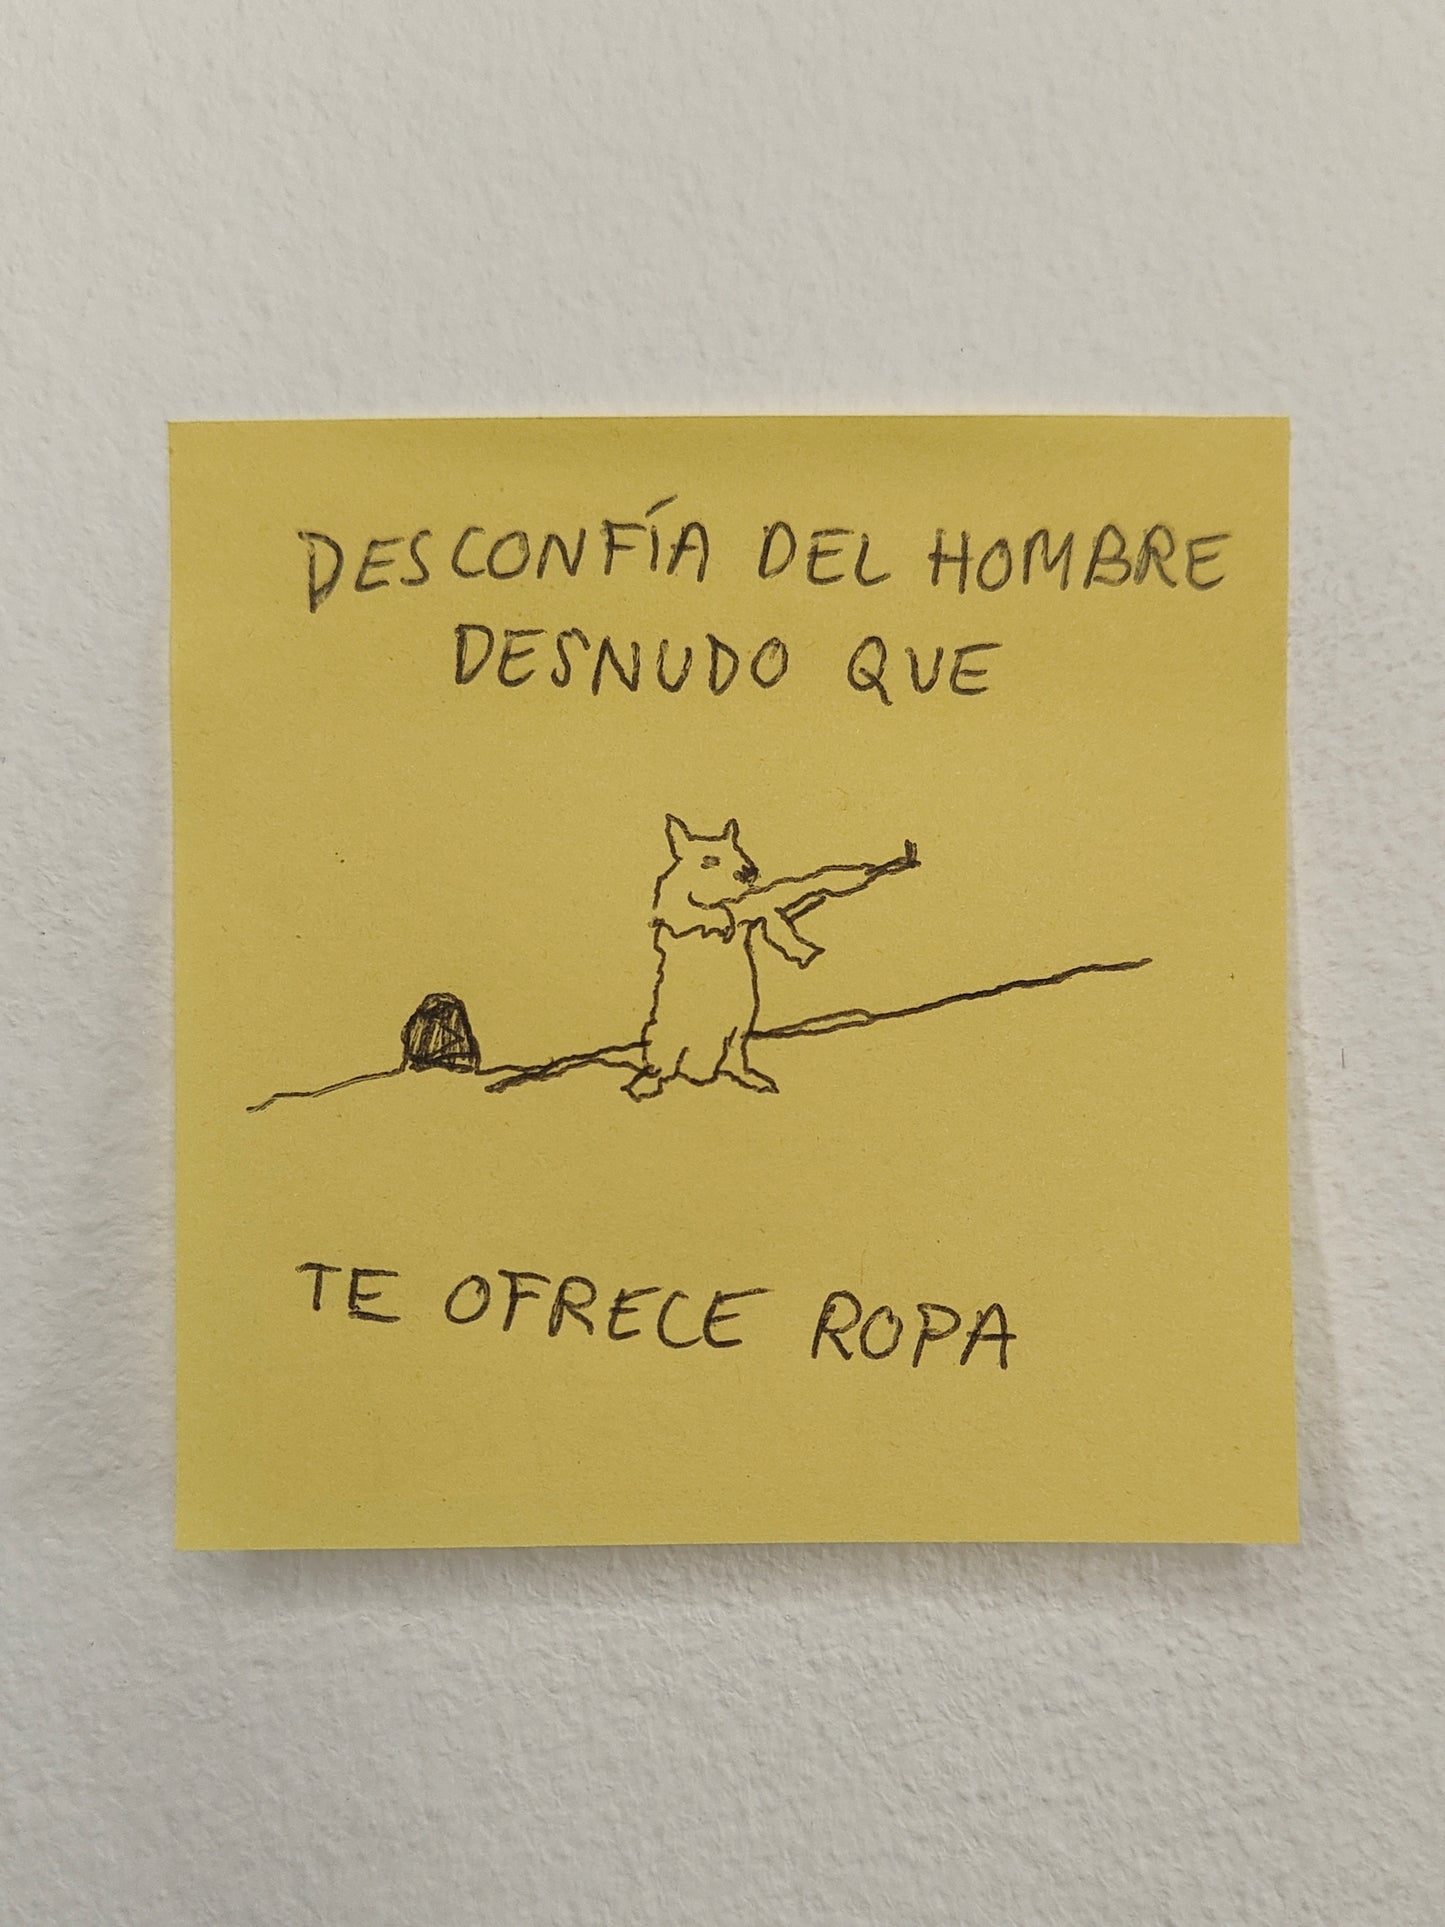 DESCONFÍA DEL HOMBRE
DESNUDO QUE
TE OFRECE ROPA